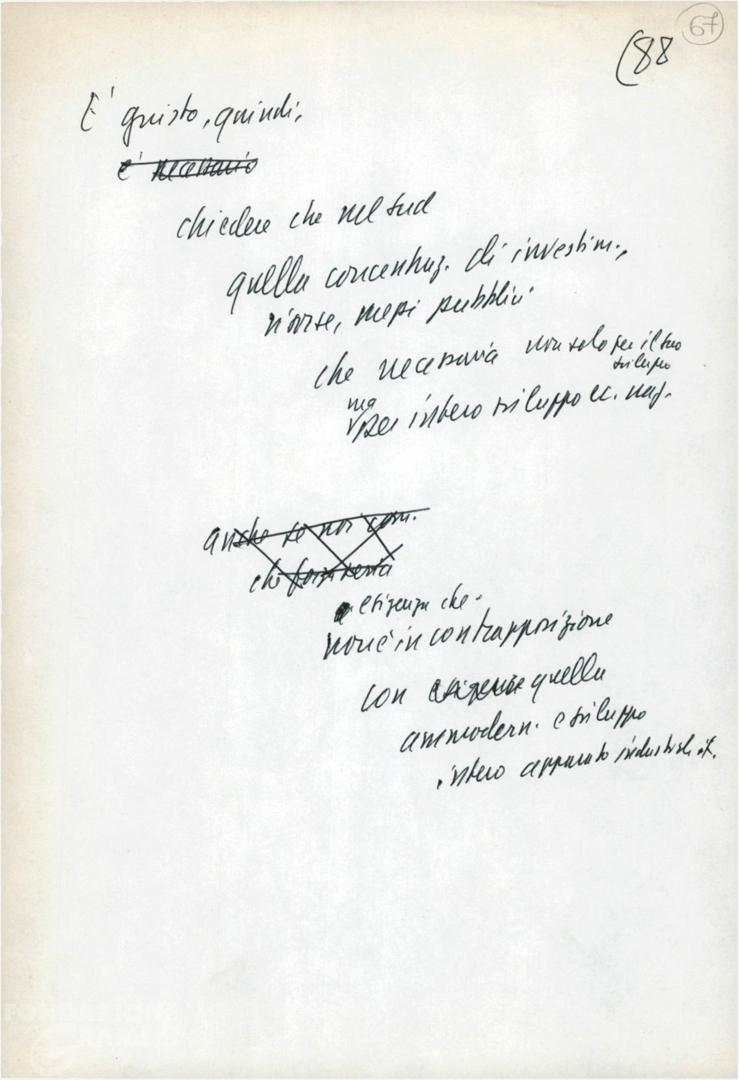 67
(88
E' giusto, quindi,
e' necessario
chiedere che nel sud
quella concentraz. di investim.,
risorse, mezzi pubblici
che necessaria non solo per il suo
sviluppo
ma
per intero sviluppo ec. naz.
anche se noi com.
che
esigenza che
non è in contrapposizione
con esigenze quella
ammodern. e sviluppo
intero apparato industriale it.
FONDAZIONE
GRAMSCI